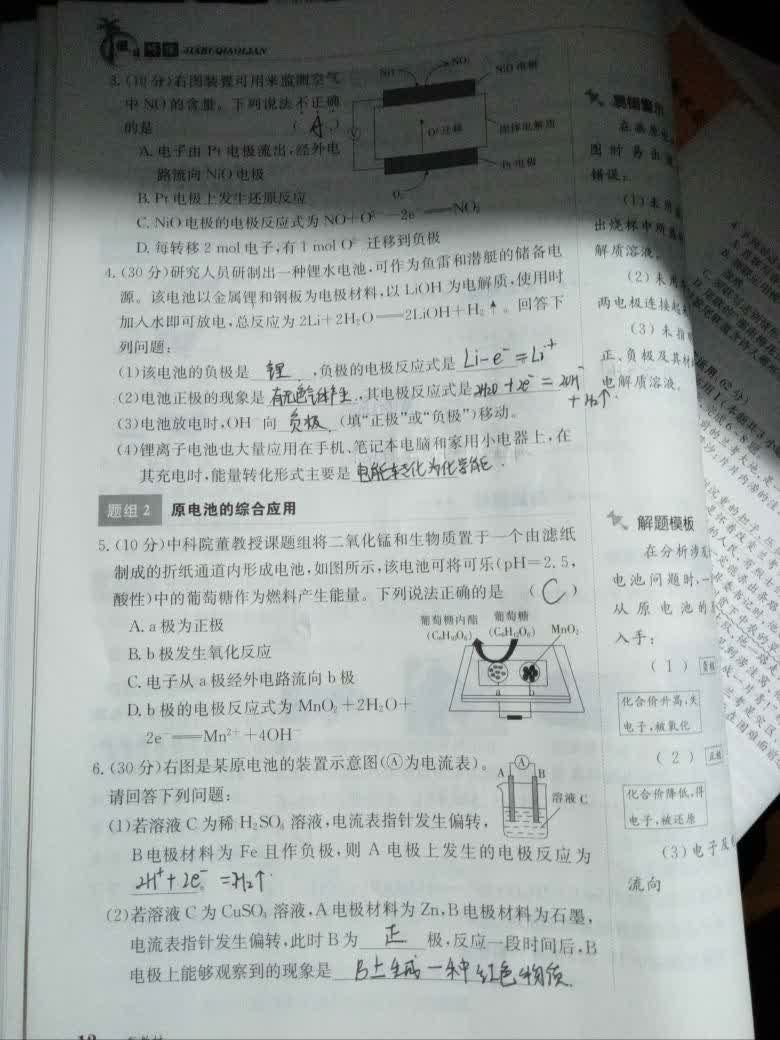 JIABI QIAOLIAN
3.(10分)右图装置可用来监测空气
中NO的含量。下列说法不正确
的是 ( A )
A.电子由Pt电极流出,经外电
路流向NiO电极
B.Pt电极上发生还原反应
C.NiO电极的电极反应式为NO+O²⁻-2e⁻══NO₂
D.每转移2 mol电子,有1 mol O²⁻迁移到负极
NO
NO₂
NiO电极
V
O²⁻迁移
固体电解质
Pt电极
O₂
4.(30分)研究人员研制出一种锂水电池,可作为鱼雷和潜艇的储备电
源。该电池以金属锂和钢板为电极材料,以LiOH为电解质,使用时
加入水即可放电,总反应为2Li+2H₂O══2LiOH+H₂↑。回答下
列问题:
(1)该电池的负极是 锂 ,负极的电极反应式是 Li-e⁻=Li⁺
(2)电池正极的现象是 有无色气体产生 ,其电极反应式是 2H₂O+2e⁻=2OH⁻
+H₂↑.
(3)电池放电时,OH⁻向 负极 (填“正极”或“负极”)移动。
(4)锂离子电池也大量应用在手机、笔记本电脑和家用小电器上,在
其充电时,能量转化形式主要是 电能转化为化学能.
题组2 原电池的综合应用
5.(10分)中科院董教授课题组将二氧化锰和生物质置于一个由滤纸
制成的折纸通道内形成电池,如图所示,该电池可将可乐(pH=2.5,
酸性)中的葡萄糖作为燃料产生能量。下列说法正确的是 ( C )
A.a极为正极
B.b极发生氧化反应
C.电子从a极经外电路流向b极
D.b极的电极反应式为MnO₂+2H₂O+
2e⁻══Mn²⁺+4OH⁻
葡萄糖内酯 葡萄糖
(C₆H₁₀O₆) (C₆H₁₂O₆) MnO₂
a b
6.(30分)右图是某原电池的装置示意图(Ⓐ为电流表)。
请回答下列问题:
(1)若溶液C为稀H₂SO₄溶液,电流表指针发生偏转,
B电极材料为Fe且作负极,则A电极上发生的电极反应为
2H⁺+2e⁻=H₂↑.
A Ⓐ B
溶液C
(2)若溶液C为CuSO₄溶液,A电极材料为Zn,B电极材料为石墨,
电流表指针发生偏转,此时B为 正 极,反应一段时间后,B
电极上能够观察到的现象是 B上生成一种红色物质.
易错警示
在画原电
图时易出
错误:
(1)未用
出烧杯中所盛
解质溶液。
(2)未用
两电极连接起
(3)未指
正、负极及其材
电解质溶液。
解题模板
在分析涉及
电池问题时,一
从原电池的
入手:
(1) 负极
化合价升高,失
电子,被氧化
(2) 正极
化合价降低,得
电子,被还原
(3)电子及
流向